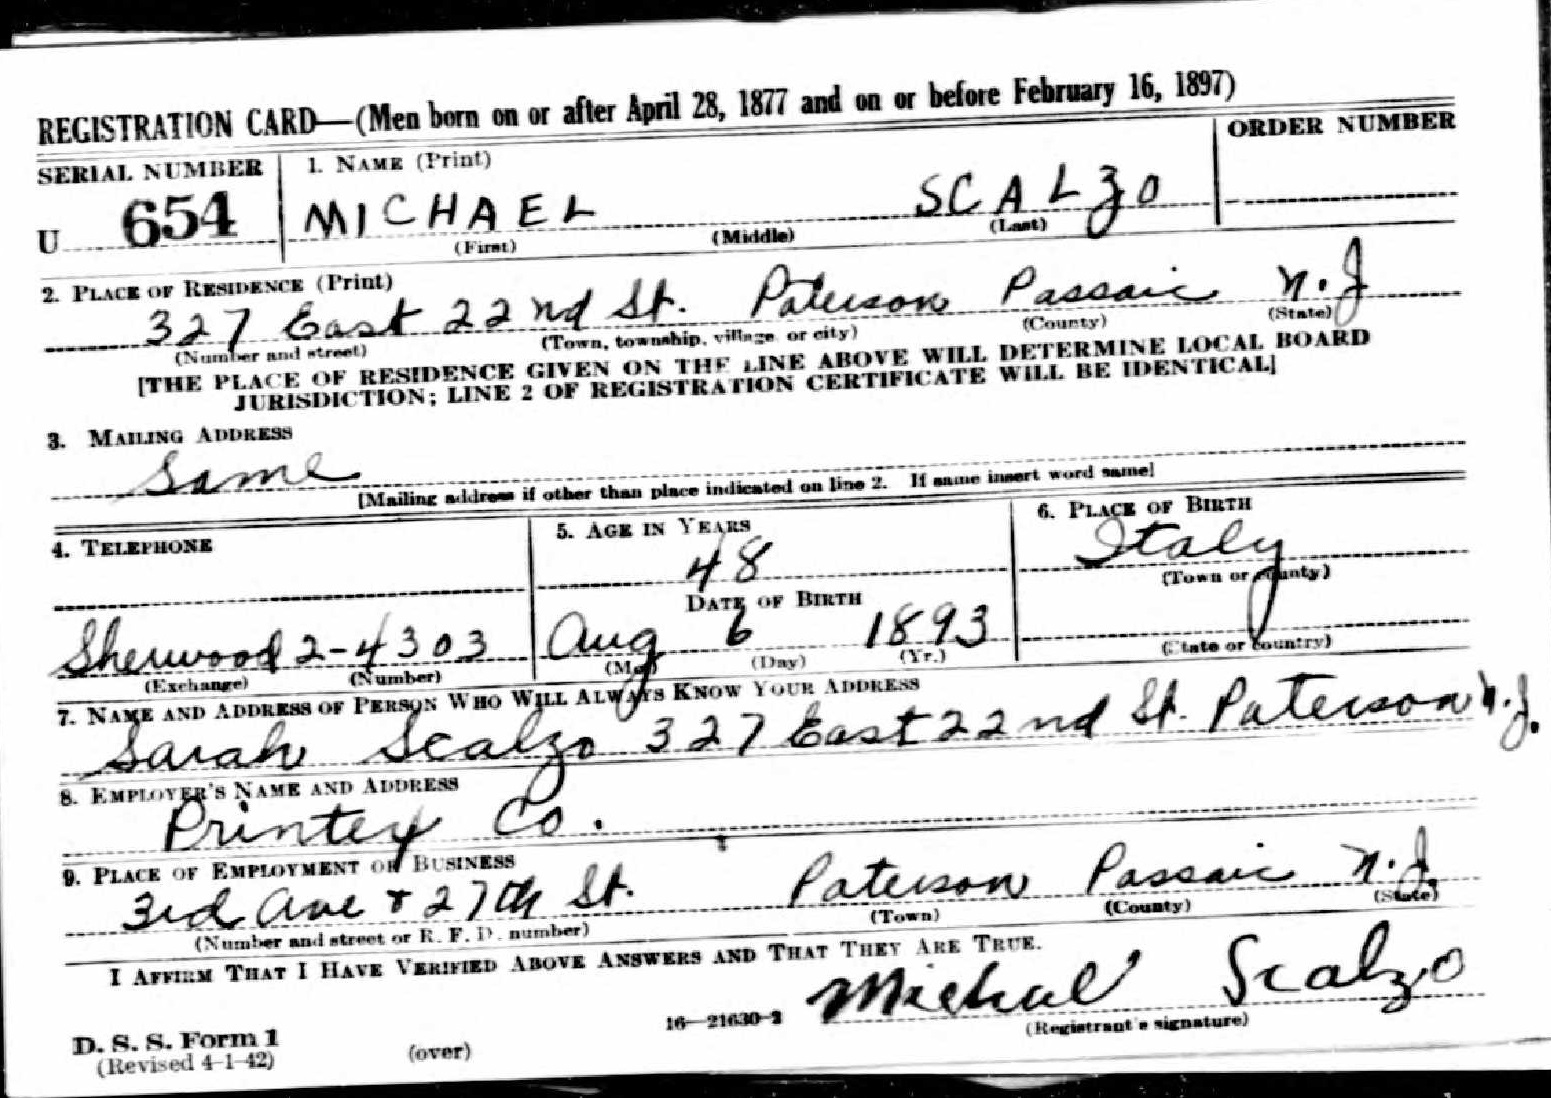 REGISTRATION CARD—(Men born on or after April 28, 1877 and on or before February 16, 1897)
SERIAL NUMBER
1. NAME (Print)
ORDER NUMBER
U 654
MICHAEL SCALZO
(First) (Middle) (Last)
2. PLACE OF RESIDENCE (Print)
327 East 22nd St. Paterson Passaic N.J
(Number and street) (Town, township, village, or city) (County) (State)
[THE PLACE OF RESIDENCE GIVEN ON THE LINE ABOVE WILL DETERMINE LOCAL BOARD
JURISDICTION; LINE 2 OF REGISTRATION CERTIFICATE WILL BE IDENTICAL]
3. MAILING ADDRESS
Same
[Mailing address if other than place indicated on line 2. If same insert word same]
4. TELEPHONE
5. AGE IN YEARS
6. PLACE OF BIRTH
48
Italy
(Town or county)
DATE OF BIRTH
Sherwood 2-4303
Aug 6 1893
(Exchange) (Number)
(Mo.) (Day) (Yr.)
(State or country)
7. NAME AND ADDRESS OF PERSON WHO WILL ALWAYS KNOW YOUR ADDRESS
Sarah Scalzo 327 East 22nd St. Paterson N.J.
8. EMPLOYER'S NAME AND ADDRESS
Printex Co.
9. PLACE OF EMPLOYMENT OR BUSINESS
3rd Ave & 27th St. Paterson Passaic N.J.
(Number and street or R. F. D. number) (Town) (County) (State)
I AFFIRM THAT I HAVE VERIFIED ABOVE ANSWERS AND THAT THEY ARE TRUE.
Michael Scalzo
D. S. S. Form 1
(Revised 4-1-42)
(over)
16—21630-2
(Registrant's signature)